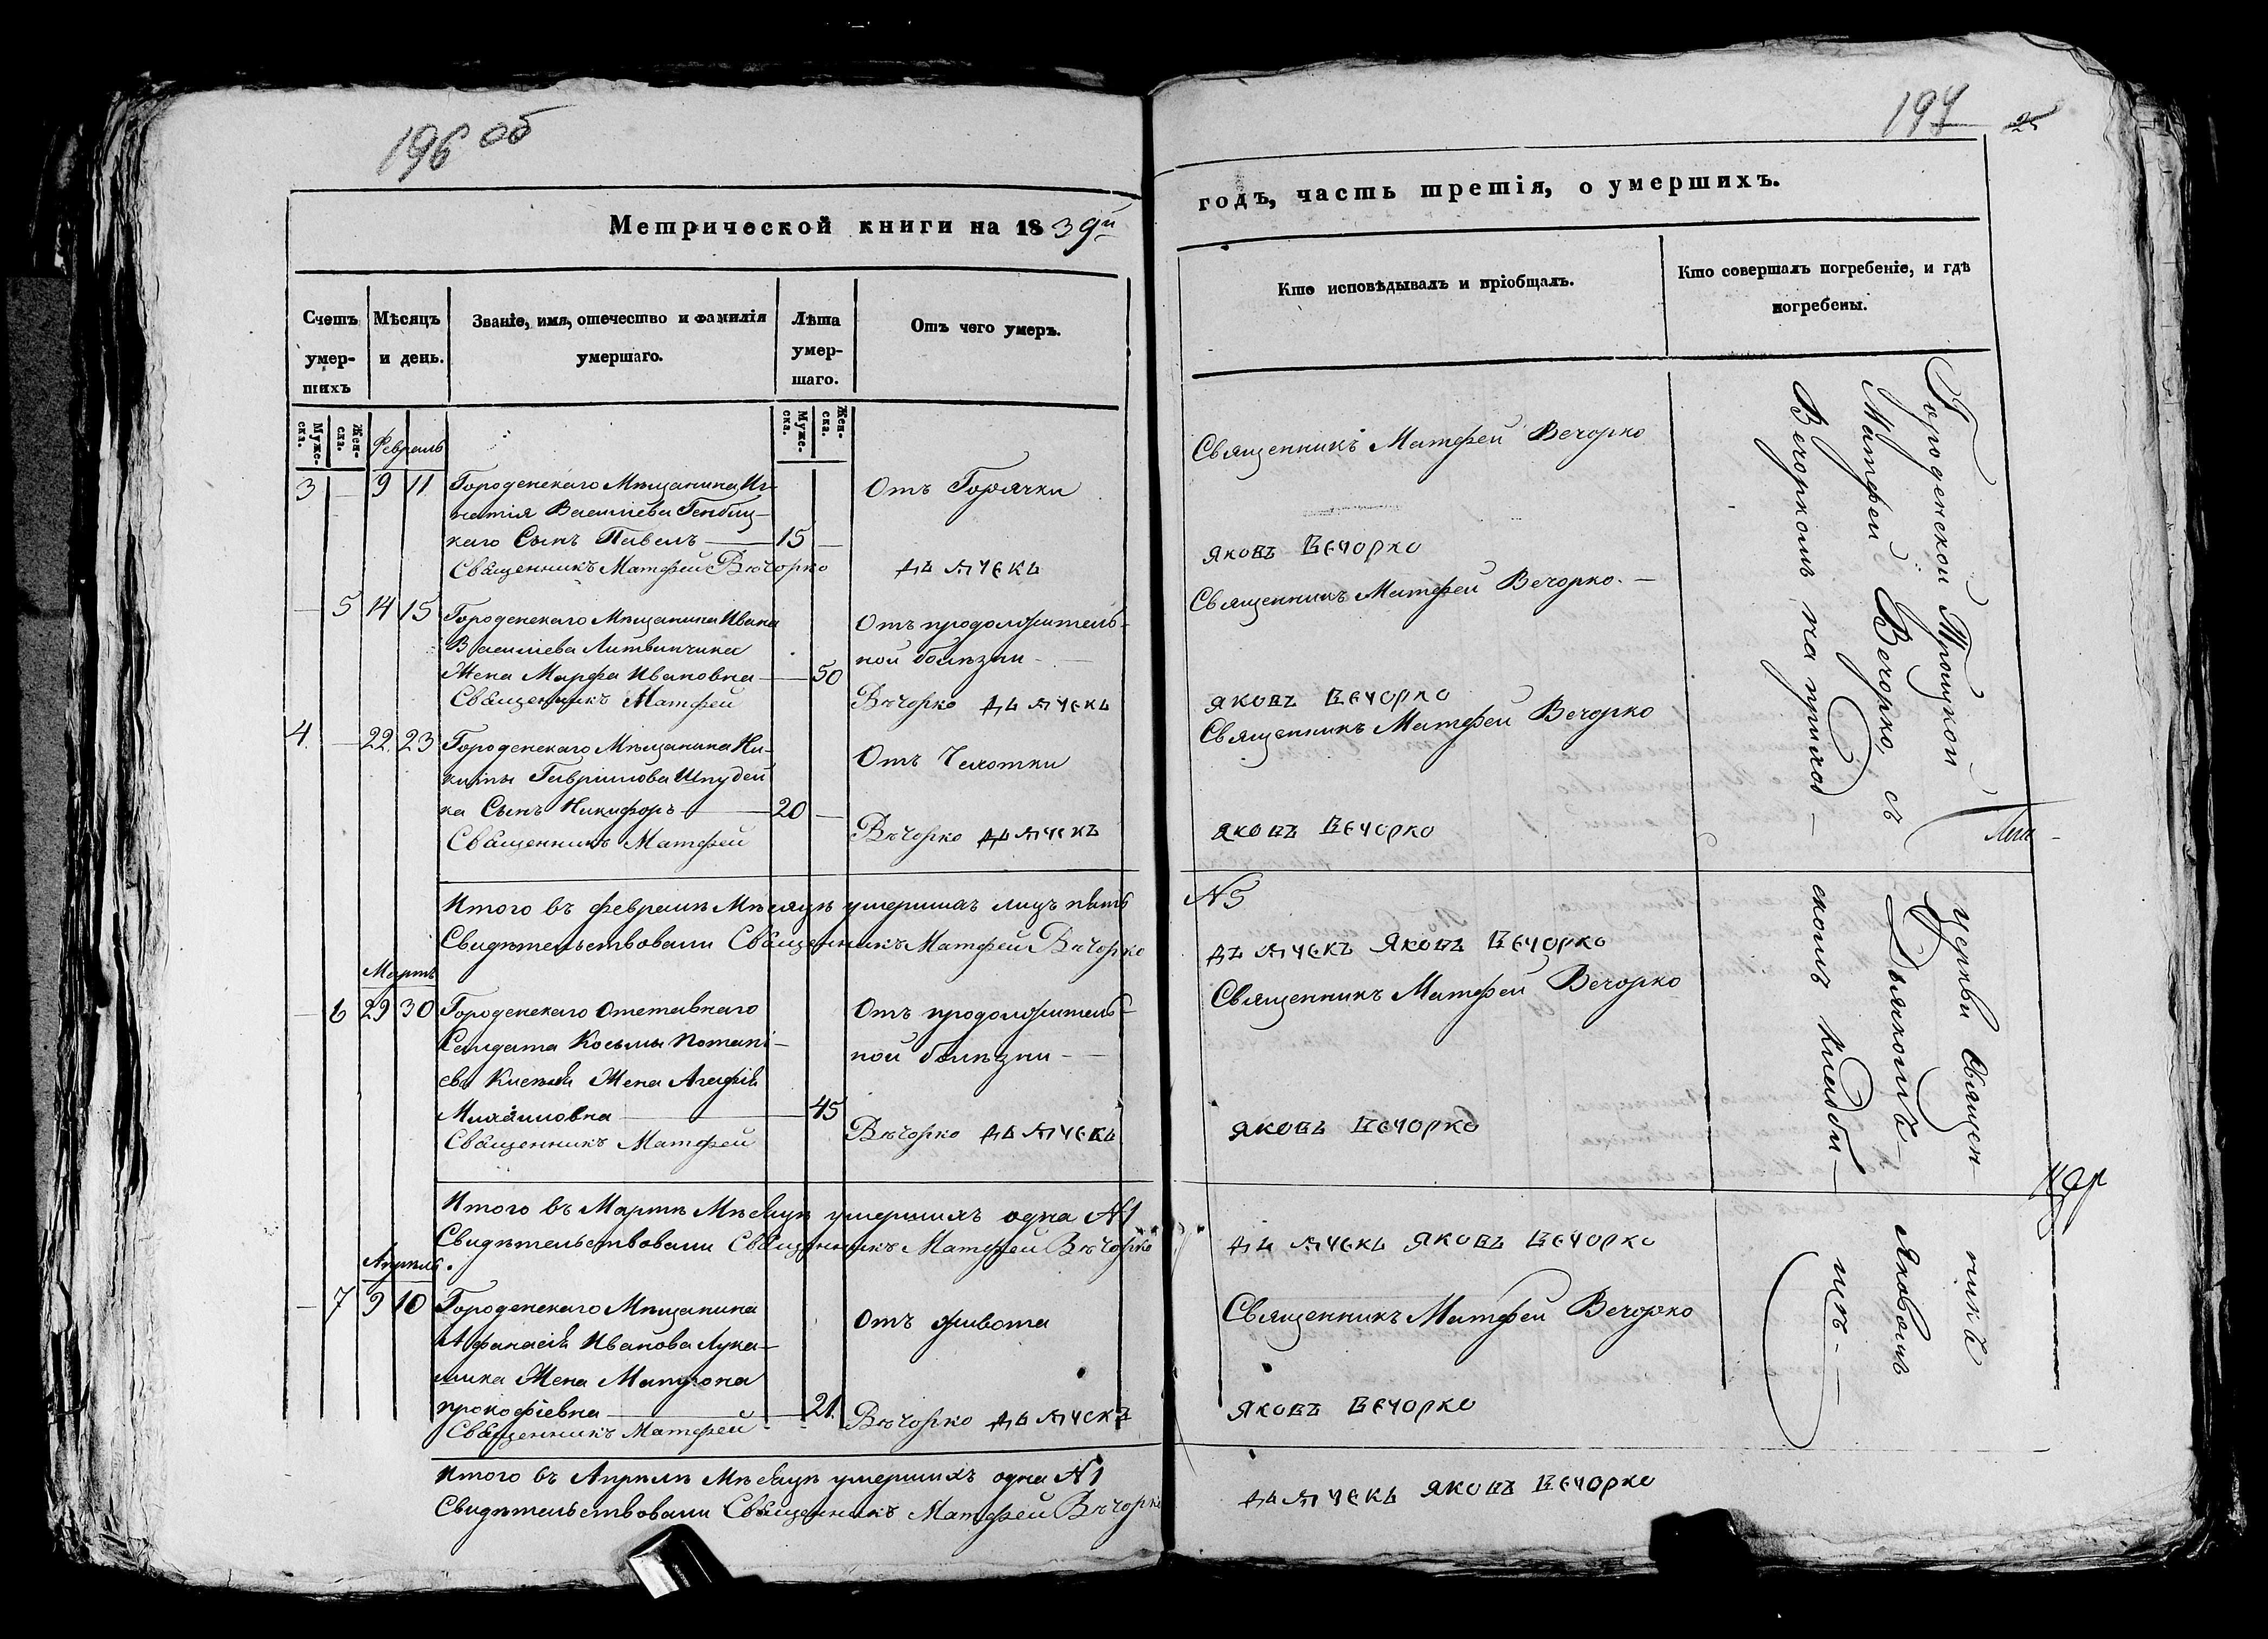 196 об
Метрической книги на 1839й
Счетъ умер-шихъ
Мѣсяцъ и день.
Званіе, имя, отечество и фамилія умершаго.
Лѣта умер-шаго.
Отъ чего умеръ.
Муже-ска.
Жен-ска.
Муже-ска.
Жен-ска.
Февраль
3 — 9 11 Городенскаго Мѣщанина Иг-
натія Васильева
каго Сынъ Павелъ — 15 —
Отъ Горячки
Священникъ Матфей Вѣчорко дьячекъ
— 5 14 15 Городенскаго Мѣщанина Ивана
Васильева Литвинчика
Жена Марфа Ивановна — 50
Отъ продолжитель-
ной болѣзни —
Священникъ Матфей Вѣчорко дьячекъ
4. — 22. 23 Городенскаго Мѣщанина Ни-
киты Гаврилова Шпудей
ка Сынъ Никифоръ — 20 —
Отъ Чахотки
Священникъ Матфей Вѣчорко дьячекъ
Итого въ февралѣ Мѣсяцѣ умершихъ лицъ пять
Свидѣтельствовали Священникъ Матфей Вѣчорко
Мартъ
— 6 29 30 Городенскаго Отставнаго
Салдата Косьмы Потапі-
ева Жена Агафія
Михайловна — 45
Отъ продолжитель-
ной болѣзни —
Священникъ Матфей Вѣчорко дьячекъ
Итого въ Мартѣ Мѣсяцѣ умершихъ одна №1
Свидѣтельствовали Священникъ Матфей Вѣчорко
Апрѣль.
— 7 9 10 Городенскаго Мѣщанина
Афанасія Иванова Лука-
шика Жена Матрона
прокофіевна — 21.
Отъ живота
Священникъ Матфей Вѣчорко дьячекъ
Итого въ Апрѣлѣ Мѣсяцѣ умершихъ одна №1
Свидѣтельствовали Священникъ Матфей Вѣчорко
197
годъ, часть третія, о умершихъ.
Кто исповѣдывалъ и пріобщалъ.
Кто совершалъ погребеніе, и гдѣ погребены.
Священникъ Матфей Вечорко
яковъ Вечорко
Священникъ Матфей Вечорко. —
яковъ Вечорко
Священникъ Матфей Вечорко
яковъ Вечорко
№5
дьячекъ яковъ Вечорко
Священникъ Матфей Вечорко
яковъ Вечорко
дьячекъ яковъ Вечорко
Священникъ Матфей Вечорко
яковъ Вечорко
дьячекъ яковъ Вечорко
Городенской Троицкой церкви Священ-никъ
Матфей Вечорко, съ Дьякомъ — Яковомъ
Вечоркомъ на приход-скомъ Кладби-щѣ. —